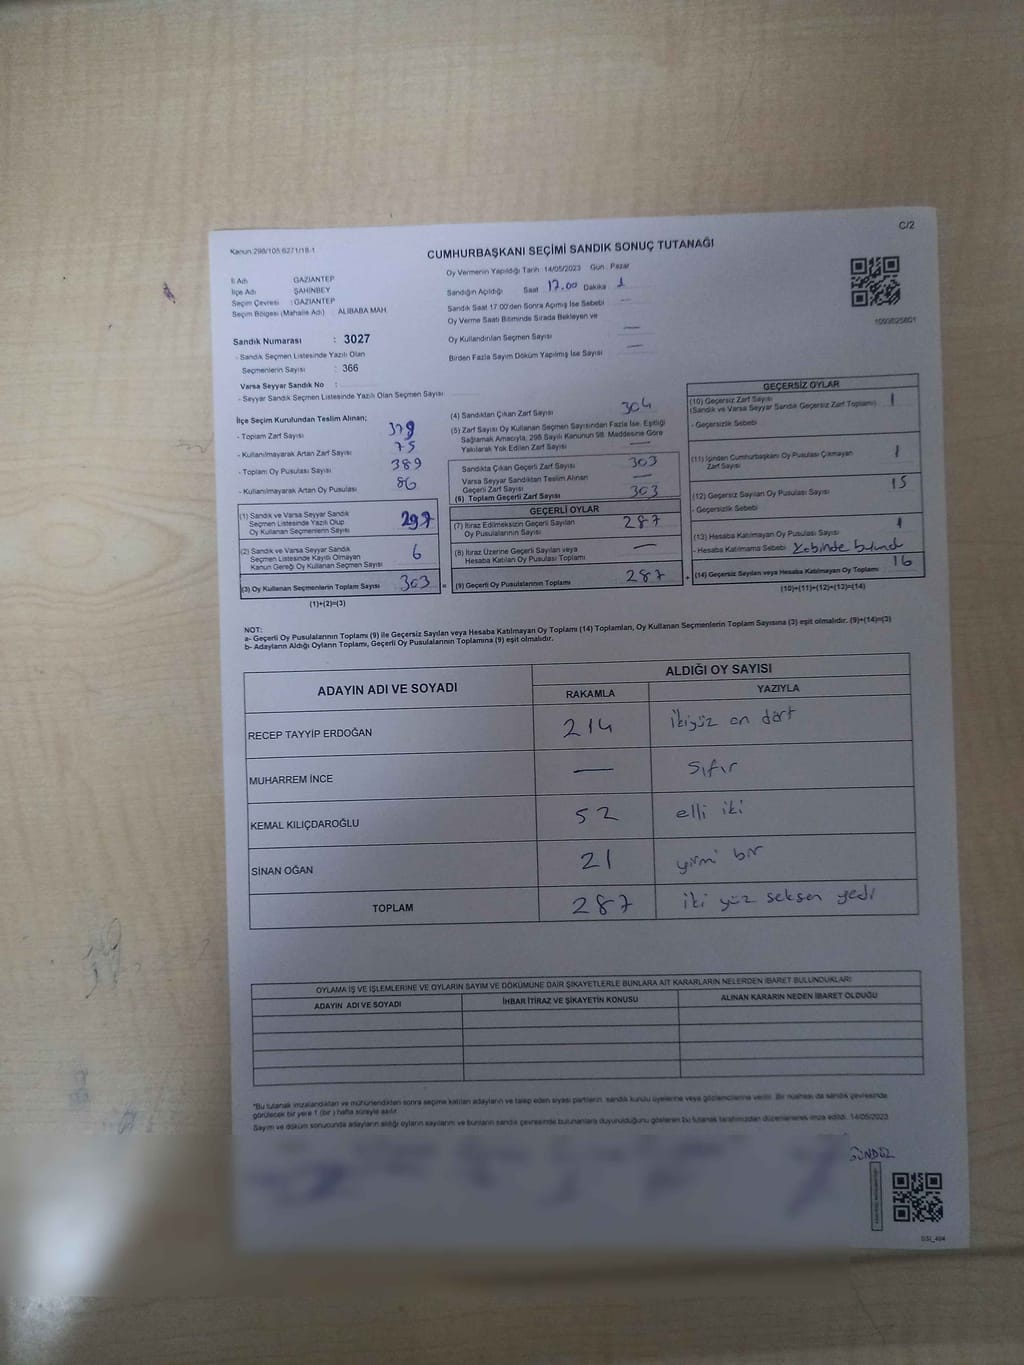 C/2
Kanun 298/105 6271/18-1
CUMHURBAŞKANI SEÇİMİ SANDIK SONUÇ TUTANAĞI
İl Adı GAZİANTEP
İlçe Adı ŞAHİNBEY
Seçim Çevresi : GAZİANTEP
Seçim Bölgesi (Mahalle Adı) : ALİBABA MAH.
Oy Vermenin Yapıldığı Tarih : 14/05/2023 Gün : Pazar
Sandığın Açıldığı Saat 17.00 Dakika 1
Sandık Saat 17.00'den Sonra Açımış İse Sebebi —
Oy Verme Saati Bitiminde Sırada Bekleyen ve
Oy Kullandırılan Seçmen Sayısı —
Birden Fazla Sayım Döküm Yapılmış İse Sayısı —
1093825801
Sandık Numarası : 3027
- Sandık Seçmen Listesinde Yazılı Olan
Seçmenlerin Sayısı : 366
Varsa Seyyar Sandık No :
- Seyyar Sandık Seçmen Listesinde Yazılı Olan Seçmen Sayısı
İlçe Seçim Kurulundan Teslim Alınan;
- Toplam Zarf Sayısı 379
- Kullanılmayarak Artan Zarf Sayısı 75
- Toplam Oy Pusulası Sayısı 389
- Kullanılmayarak Artan Oy Pusulası 86
(1) Sandık ve Varsa Seyyar Sandık
Seçmen Listesinde Yazılı Olup
Oy Kullanan Seçmenlerin Sayısı 297
(2) Sandık ve Varsa Seyyar Sandık
Seçmen Listesinde Kayıtlı Olmayan
Kanun Gereği Oy Kullanan Seçmen Sayısı 6
(3) Oy Kullanan Seçmenlerin Toplam Sayısı 303 =
(1)+(2)=(3)
(4) Sandıktan Çıkan Zarf Sayısı 304
(5) Zarf Sayısı Oy Kullanan Seçmen Sayısından Fazla İse, Eşitliği
Sağlamak Amacıyla, 298 Sayılı Kanunun 98. Maddesine Göre
Yakılarak Yok Edilen Zarf Sayısı —
Sandıkta Çıkan Geçerli Zarf Sayısı 303
Varsa Seyyar Sandıktan Teslim Alınan
Geçerli Zarf Sayısı —
(6) Toplam Geçerli Zarf Sayısı 303
GEÇERLİ OYLAR
(7) İtiraz Edilmeksizin Geçerli Sayılan
Oy Pusulalarının Sayısı 287
(8) İtiraz Üzerine Geçerli Sayılan veya
Hesaba Katılan Oy Pusulası Toplamı —
(9) Geçerli Oy Pusulalarının Toplamı 287 +
GEÇERSİZ OYLAR
(10) Geçersiz Zarf Sayısı
(Sandık ve Varsa Seyyar Sandık Geçersiz Zarf Toplamı) 1
- Geçersizlik Sebebi
(11) İçinden Cumhurbaşkanı Oy Pusulası Çıkmayan
Zarf Sayısı 1
(12) Geçersiz Sayılan Oy Pusulası Sayısı 15
- Geçersizlik Sebebi
(13) Hesaba Katılmayan Oy Pusulası Sayısı 1
- Hesaba Katılmama Sebebi
(14) Geçersiz Sayılan veya Hesaba Katılmayan Oy Toplamı 16
(10)+(11)+(12)+(13)=(14)
NOT:
a- Geçerli Oy Pusulalarının Toplamı (9) ile Geçersiz Sayılan veya Hesaba Katılmayan Oy Toplamı (14) Toplamları, Oy Kullanan Seçmenlerin Toplam Sayısına (3) eşit olmalıdır. (9)+(14)=(3)
b- Adayların Aldığı Oyların Toplamı, Geçerli Oy Pusulalarının Toplamına (9) eşit olmalıdır.
ADAYIN ADI VE SOYADI ALDIĞI OY SAYISI
RAKAMLA YAZIYLA
RECEP TAYYİP ERDOĞAN 214 ikiyüz on dört
MUHARREM İNCE — Sıfır
KEMAL KILIÇDAROĞLU 52 elli iki
SİNAN OĞAN 21 yirmi bir
TOPLAM 287 iki yüz seksen yedi
OYLAMA İŞ VE İŞLEMLERİNE VE OYLARIN SAYIM VE DÖKÜMÜNE DAİR ŞİKAYETLERLE BUNLARA AİT KARARLARIN NELERDEN İBARET BULUNDUKLARI
ADAYIN ADI VE SOYADI İHBAR İTİRAZ VE ŞİKAYETİN KONUSU ALINAN KARARIN NEDEN İBARET OLDUĞU
*Bu tutanak imzalandıktan ve mühürlendikten sonra seçime katılan adayların ve talep eden siyasi partilerin sandık kurulu üyelerine veya gözlemcilerine verilir. Bir nüshası da sandık çevresinde
görülecek bir yere 1 (bir) hafta süreyle asılır.
Sayım ve döküm sonucunda adayların aldığı oyların sayılarını ve bunların sandık çevresinde bulunanlara duyurulduğunu gösteren bu tutanak tarafımızdan düzenlenerek imza edildi. 14/05/2023
GÜNDÜZ